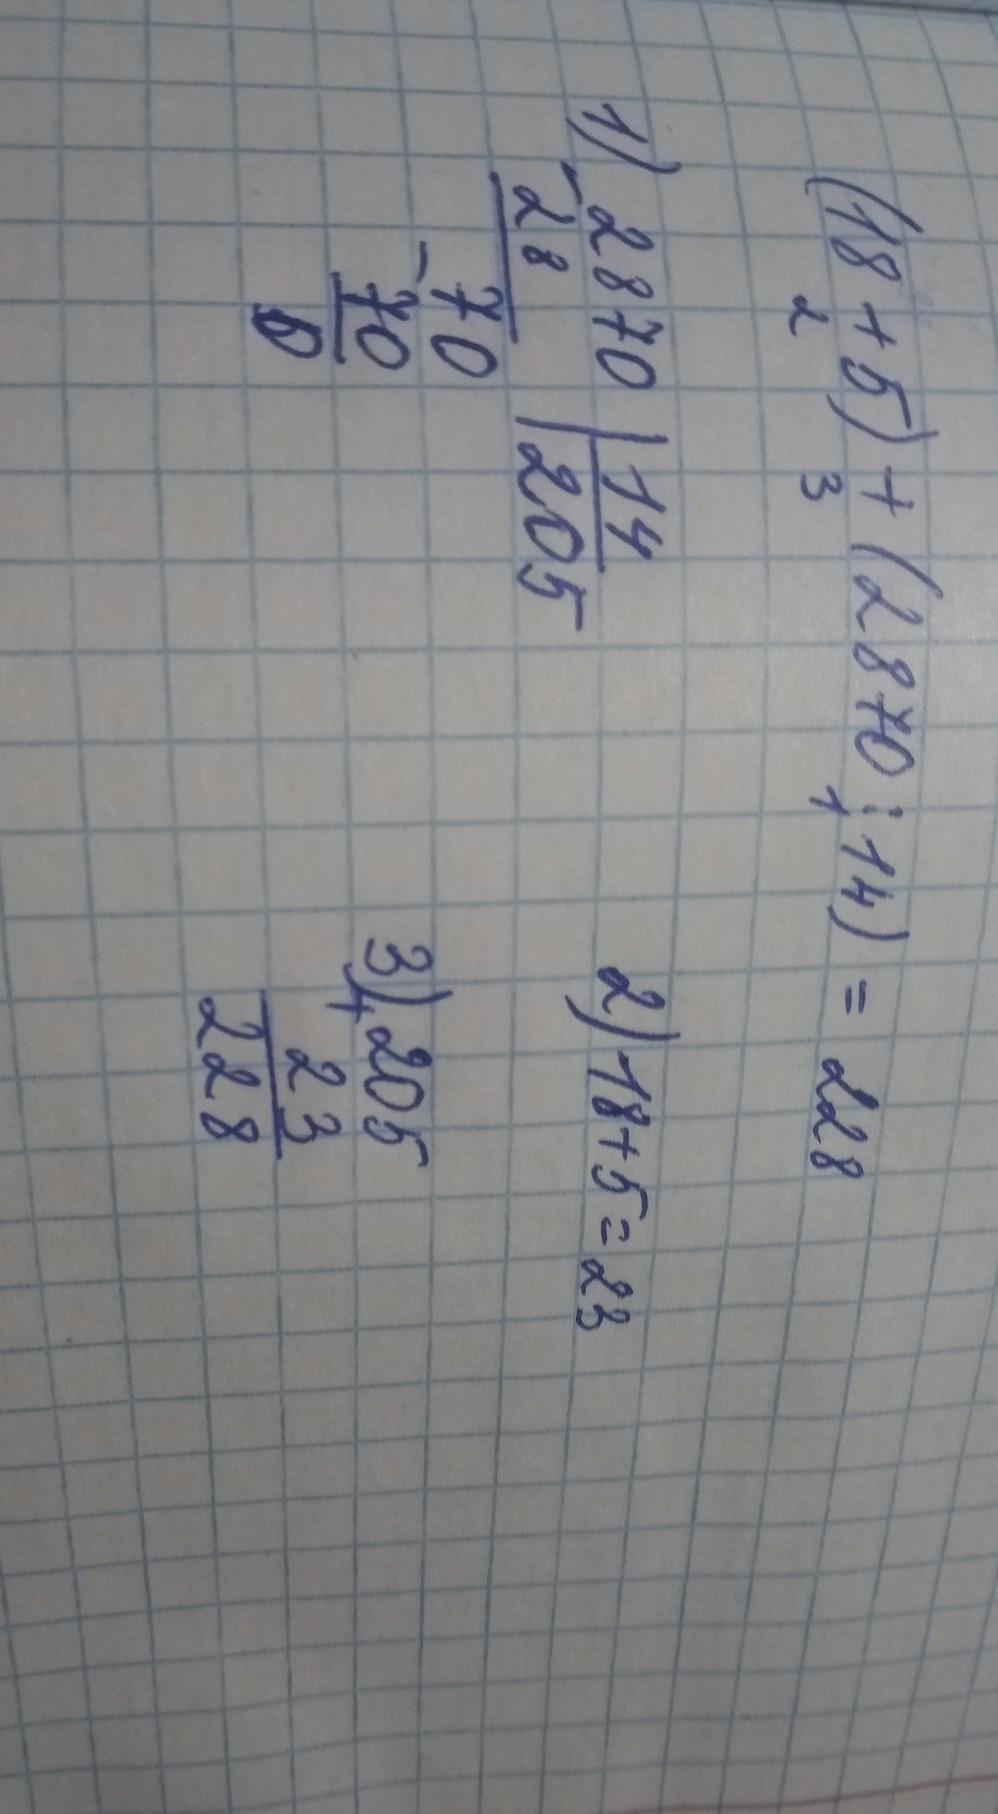 (18 + 5) + (2870 : 14) = 228
2 3 1
1) - 2870 | 14
28 | 205
- 70
70
0
2) 18 + 5 = 23
3) + 205
23
228